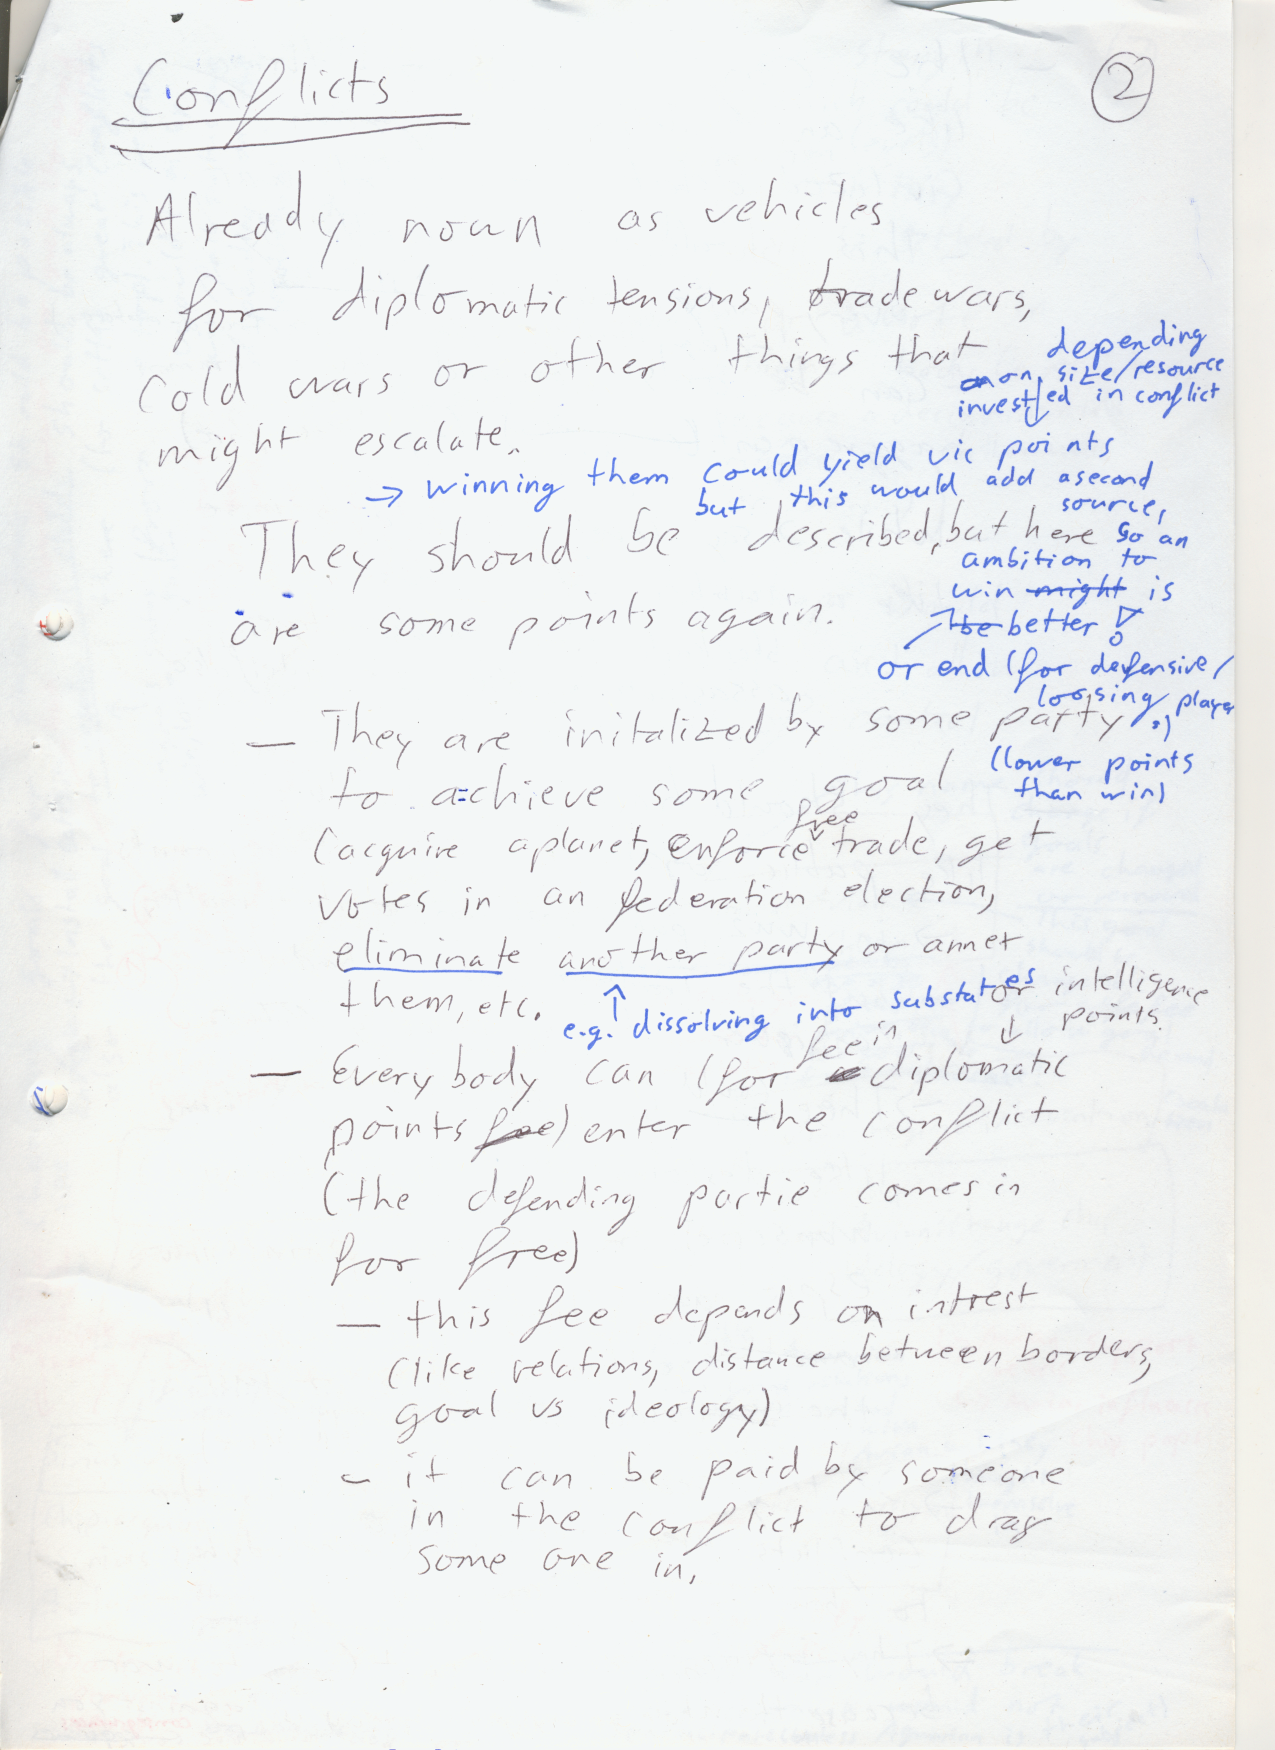 Conflicts
2
Already noun as vehicles
for diplomatic tensions, trade wars,
cold wars or other things that
might escalate.
depending
on size/resource
invested in conflict
→ winning them could yield vic points
but this would add a second
source,
so an
ambition to
win might is
be better!
or end (for defensive/
loosing player
:)
(lower points
than win)
They should be described, but here
are some points again.
— They are initalized by some party
to achieve some goal
(acquire a planet, enforce free trade, get
votes in an federation election,
eliminate another party or annet
them, etc.
↑
e.g. dissolving into substates
or intelligence
points.
↓
— Everybody can (for fee in diplomatic
points fee) enter the conflict
(the defending partie comes in
for free)
— this fee depends on intrest
(like relations, distance between borders,
goal vs ideology)
- it can be paid by someone
in the conflict to drag
some one in.